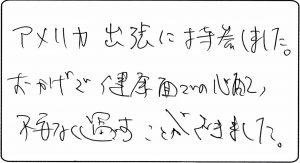 アメリカ出張に持参しました。
おかげで健康面での心配、
不安なく過すことができました。